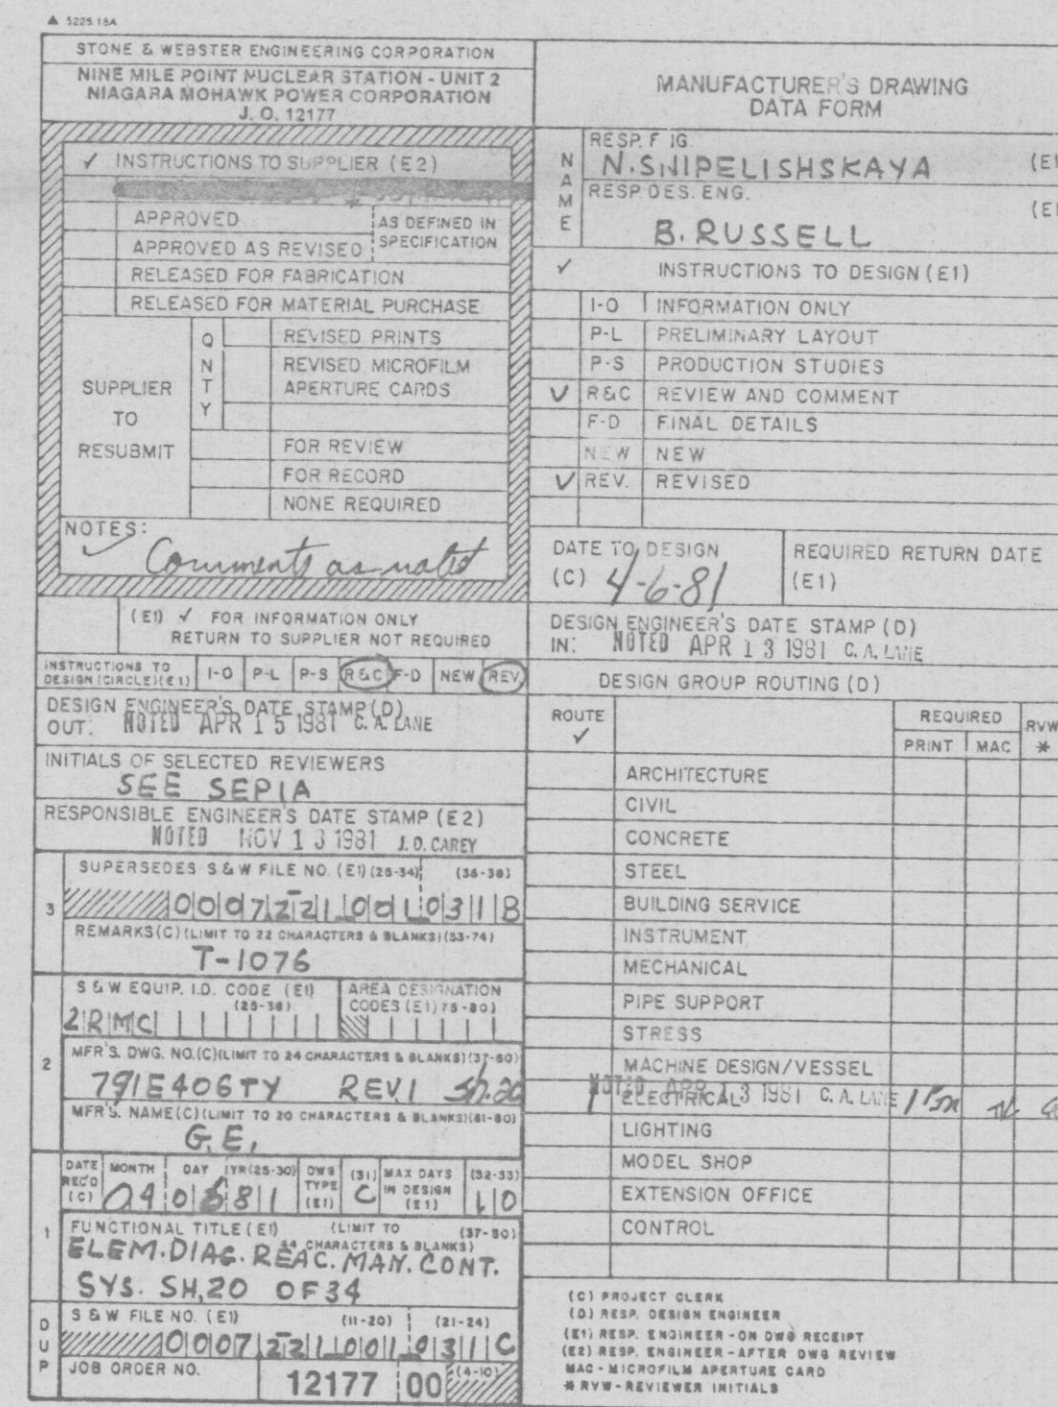 ▲ 5225.18A
STONE & WEBSTER ENGINEERING CORPORATION
NINE MILE POINT NUCLEAR STATION - UNIT 2
NIAGARA MOHAWK POWER CORPORATION
J. O. 12177
✓ INSTRUCTIONS TO SUPPLIER (E2)
APPROVED
AS DEFINED IN
APPROVED AS REVISED
SPECIFICATION
RELEASED FOR FABRICATION
RELEASED FOR MATERIAL PURCHASE
SUPPLIER
TO
RESUBMIT
QNTY
REVISED PRINTS
REVISED MICROFILM
APERTURE CARDS
FOR REVIEW
FOR RECORD
NONE REQUIRED
NOTES:
✓ Comments as noted
(E1) ✓ FOR INFORMATION ONLY
RETURN TO SUPPLIER NOT REQUIRED
INSTRUCTIONS TO
DESIGN (CIRCLE)(E1) I-O P-L P-S R&C F-D NEW REV.
DESIGN ENGINEER'S DATE STAMP(D)
OUT: NOTED APR 15 1981 C. A. LANE
INITIALS OF SELECTED REVIEWERS
SEE SEPIA
RESPONSIBLE ENGINEER'S DATE STAMP (E2)
NOTED NOV 13 1981 J.D. CAREY
3
SUPERSEDES S&W FILE NO. (E1)(25-34) (36-38)
0007221001031B
REMARKS(C)(LIMIT TO 22 CHARACTERS & BLANKS)(53-74)
T-1076
2
S&W EQUIP. I.D. CODE (E1)
(25-36)
2RMC
AREA DESIGNATION
CODES (E1)75-80)
MFR'S. DWG. NO.(C)(LIMIT TO 24 CHARACTERS & BLANKS)(37-60)
791E406TY REV.1 Sh.20
MFR'S. NAME(C)(LIMIT TO 20 CHARACTERS & BLANKS)(61-80)
G.E.
1
DATE REC'D (C) MONTH DAY YR(25-30) DWG TYPE (E1) (31) MAX DAYS IN DESIGN (E1) (32-33)
040681 C 10
FUNCTIONAL TITLE (E1) (LIMIT TO 44 CHARACTERS & BLANKS) (37-80)
ELEM. DIAG. REAC. MAN. CONT.
SYS. SH, 20 OF 34
DUP
S & W FILE NO. (E1) (11-20) (21-24)
0007221001031C
JOB ORDER NO.
12177 00 (4-10)
MANUFACTURER'S DRAWING
DATA FORM
NAME
N. SHIPELISHSKAYA
RESP. DES. ENG.
B. RUSSELL
✓ INSTRUCTIONS TO DESIGN (E1)
I-O INFORMATION ONLY
P-L PRELIMINARY LAYOUT
P-S PRODUCTION STUDIES
✓ R&C REVIEW AND COMMENT
F-D FINAL DETAILS
NEW NEW
✓ REV. REVISED
DATE TO DESIGN
(C) 4-6-81
REQUIRED RETURN DATE
(E1)
DESIGN ENGINEER'S DATE STAMP (D)
IN: NOTED APR 13 1981 C. A. LANE
DESIGN GROUP ROUTING (D)
ROUTE
✓
REQUIRED
PRINT MAC
RVW
*
ARCHITECTURE
CIVIL
CONCRETE
STEEL
BUILDING SERVICE
INSTRUMENT
MECHANICAL
PIPE SUPPORT
STRESS
MACHINE DESIGN/VESSEL
NOTED APR 13 1981 C. A. LANE
ELECTRICAL
LIGHTING
MODEL SHOP
EXTENSION OFFICE
CONTROL
(C) PROJECT CLERK
(D) RESP. DESIGN ENGINEER
(E1) RESP. ENGINEER-ON DWG RECEIPT
(E2) RESP. ENGINEER-AFTER DWG REVIEW
MAC-MICROFILM APERTURE CARD
* RVW-REVIEWER INITIALS